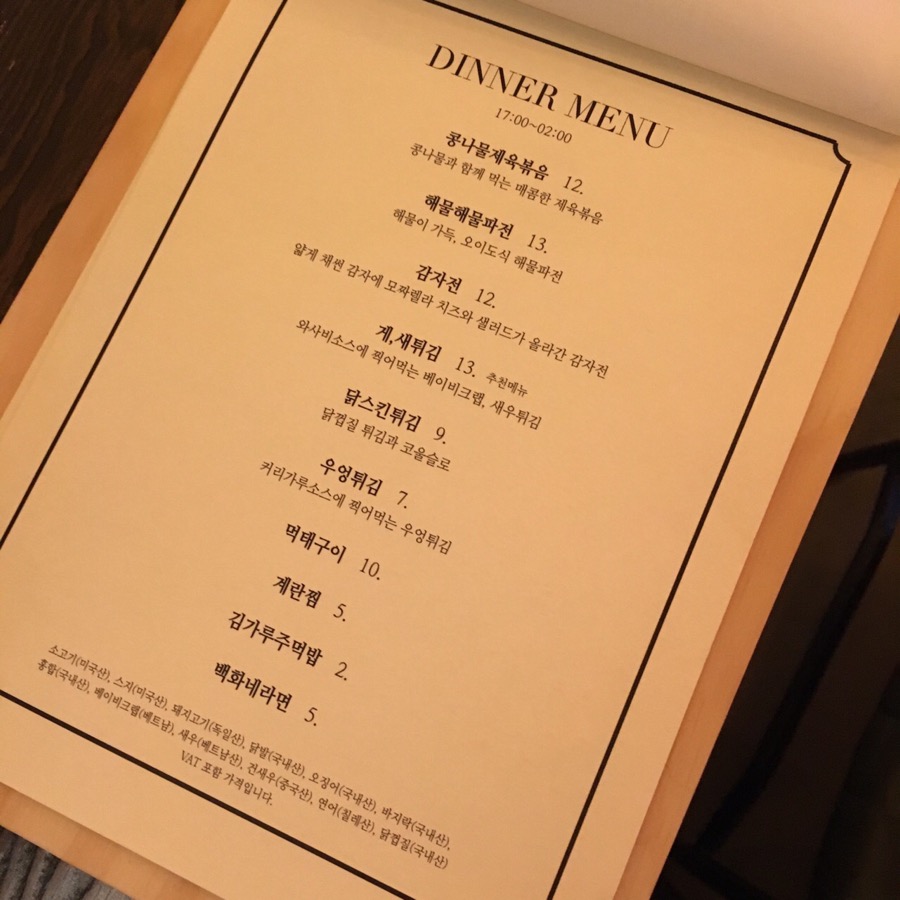 DINNER MENU
17:00~02:00
콩나물제육볶음 12.
콩나물과 함께 먹는 매콤한 제육볶음
해물해물파전 13.
해물이 가득, 오이도식 해물파전
감자전 12.
얇게 채썬 감자에 모짜렐라 치즈와 샐러드가 올라간 감자전
게,새튀김 13. 추천메뉴
와사비소스에 찍어먹는 베이비크랩, 새우튀김
닭스킨튀김 9.
닭껍질 튀김과 코울슬로
우엉튀김 7.
커리가루소스에 찍어먹는 우엉튀김
먹태구이 10.
계란찜 5.
김가루주먹밥 2.
백화네라면 5.
소고기(미국산), 스지(미국산), 돼지고기(독일산), 닭발(국내산), 오징어(국내산), 바지락(국내산),
홍합(국내산), 베이비크랩(베트남), 새우(베트남산), 건새우(중국산), 연어(칠레산), 닭껍질(국내산)
VAT 포함 가격입니다.